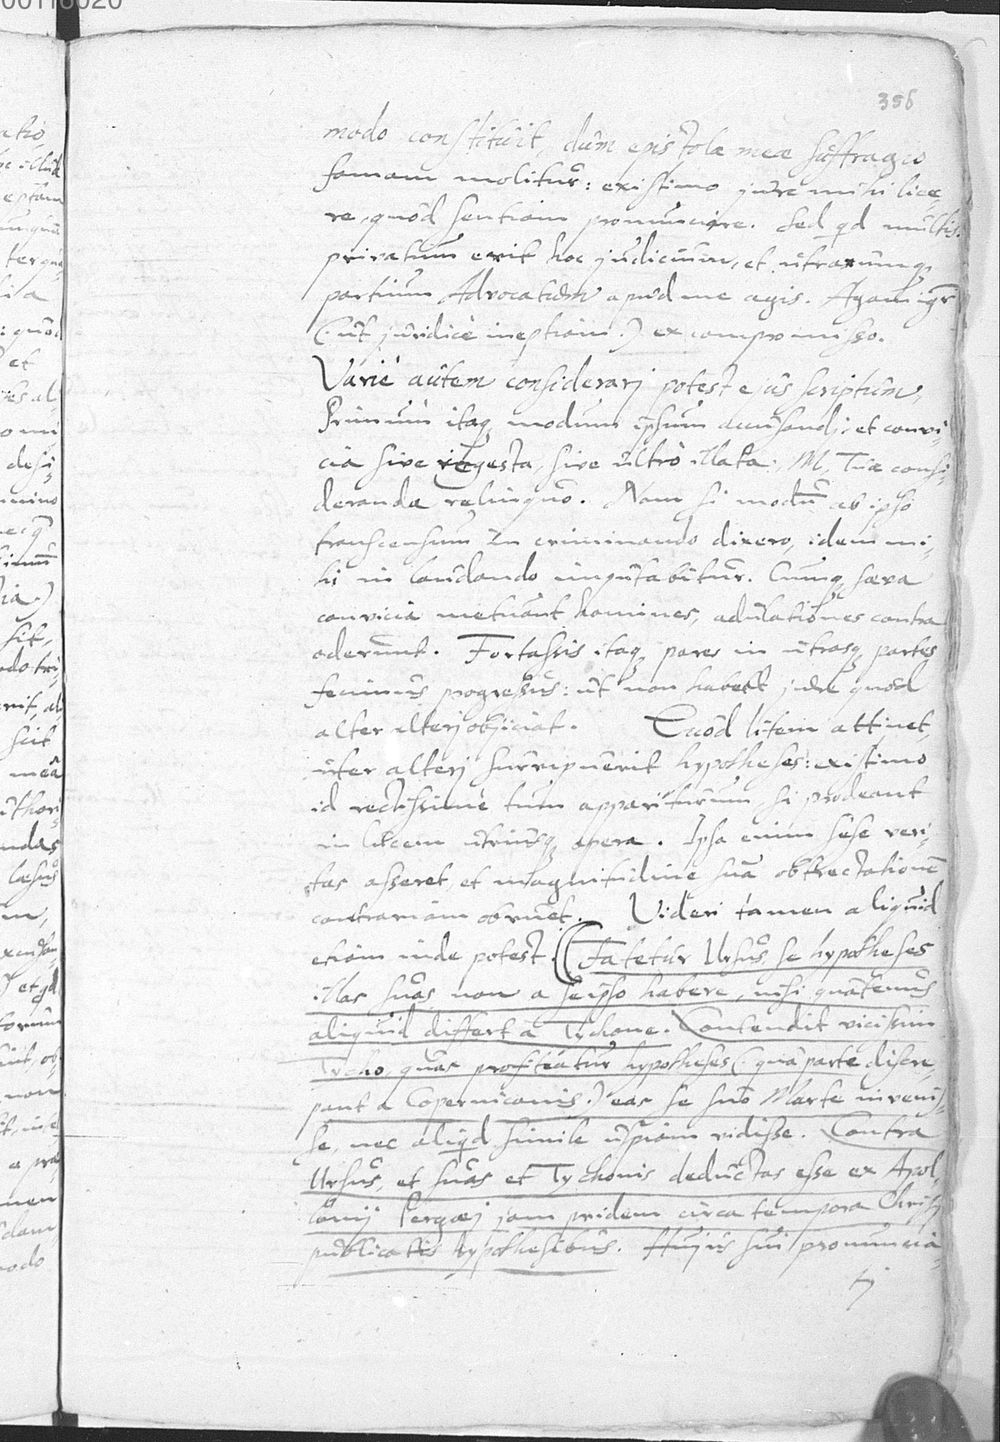 356
modo constituit, dum epistolæ meæ suffragio
famam molitur: existimo jure mihi lice,
re, quod sentiam pronunciare. Sed qd multis.
privatum erit hoc judicium, et utrarumq
partium Advocatum apud me agis. Agam igr
(ut juridicè ineptiam) ex compromisso.
Variè autem considerarj potest ejus scriptum,
Primum itaq modum ipsum accusandj, et convi,
cia sive regesta, sive ultrò illata, M, Tuæ consi,
deranda relinquo. Nam si modum ab ipso
transcensum in criminando dixero, idem mi,
hi in laudando imputabitur. Cumq sæva
convicia metuant homines, adulationes contra
oderunt. Fortassis itaq pares in utrasq partes
fecimus progressus: ut non habeat jure quod
alter alterj objiciat. Quod litem attinet,
uter alterj surripuerit hypotheses: existimo
id rectissimè tum appariturum, si prodeant
in lucem utriusq opera. Ipsa enim sese veri,
tas asseret, et magnitudine suâ obtrectationē
contrariam obruet. Videri tamen aliquid
etiam inde potest. (Fatetur Ursus, se hypotheses
illas suas non a seipso habere, nisi quatenus
aliquid differt a Tychone. Contendit vicissim
Tycho, quas profiteatur hypotheses (qua parte discre,
pant a Copernicanis) eas se suo Marte invenis,
se, nec aliqd simile uspiam vidisse. Contra
Ursus, et suas et Tychonis deductas esse ex Apol,
lonij Pergæj jam pridem circa tempora Christj
publicatis hypothesibus. Hujus sui pronuncia,
tj